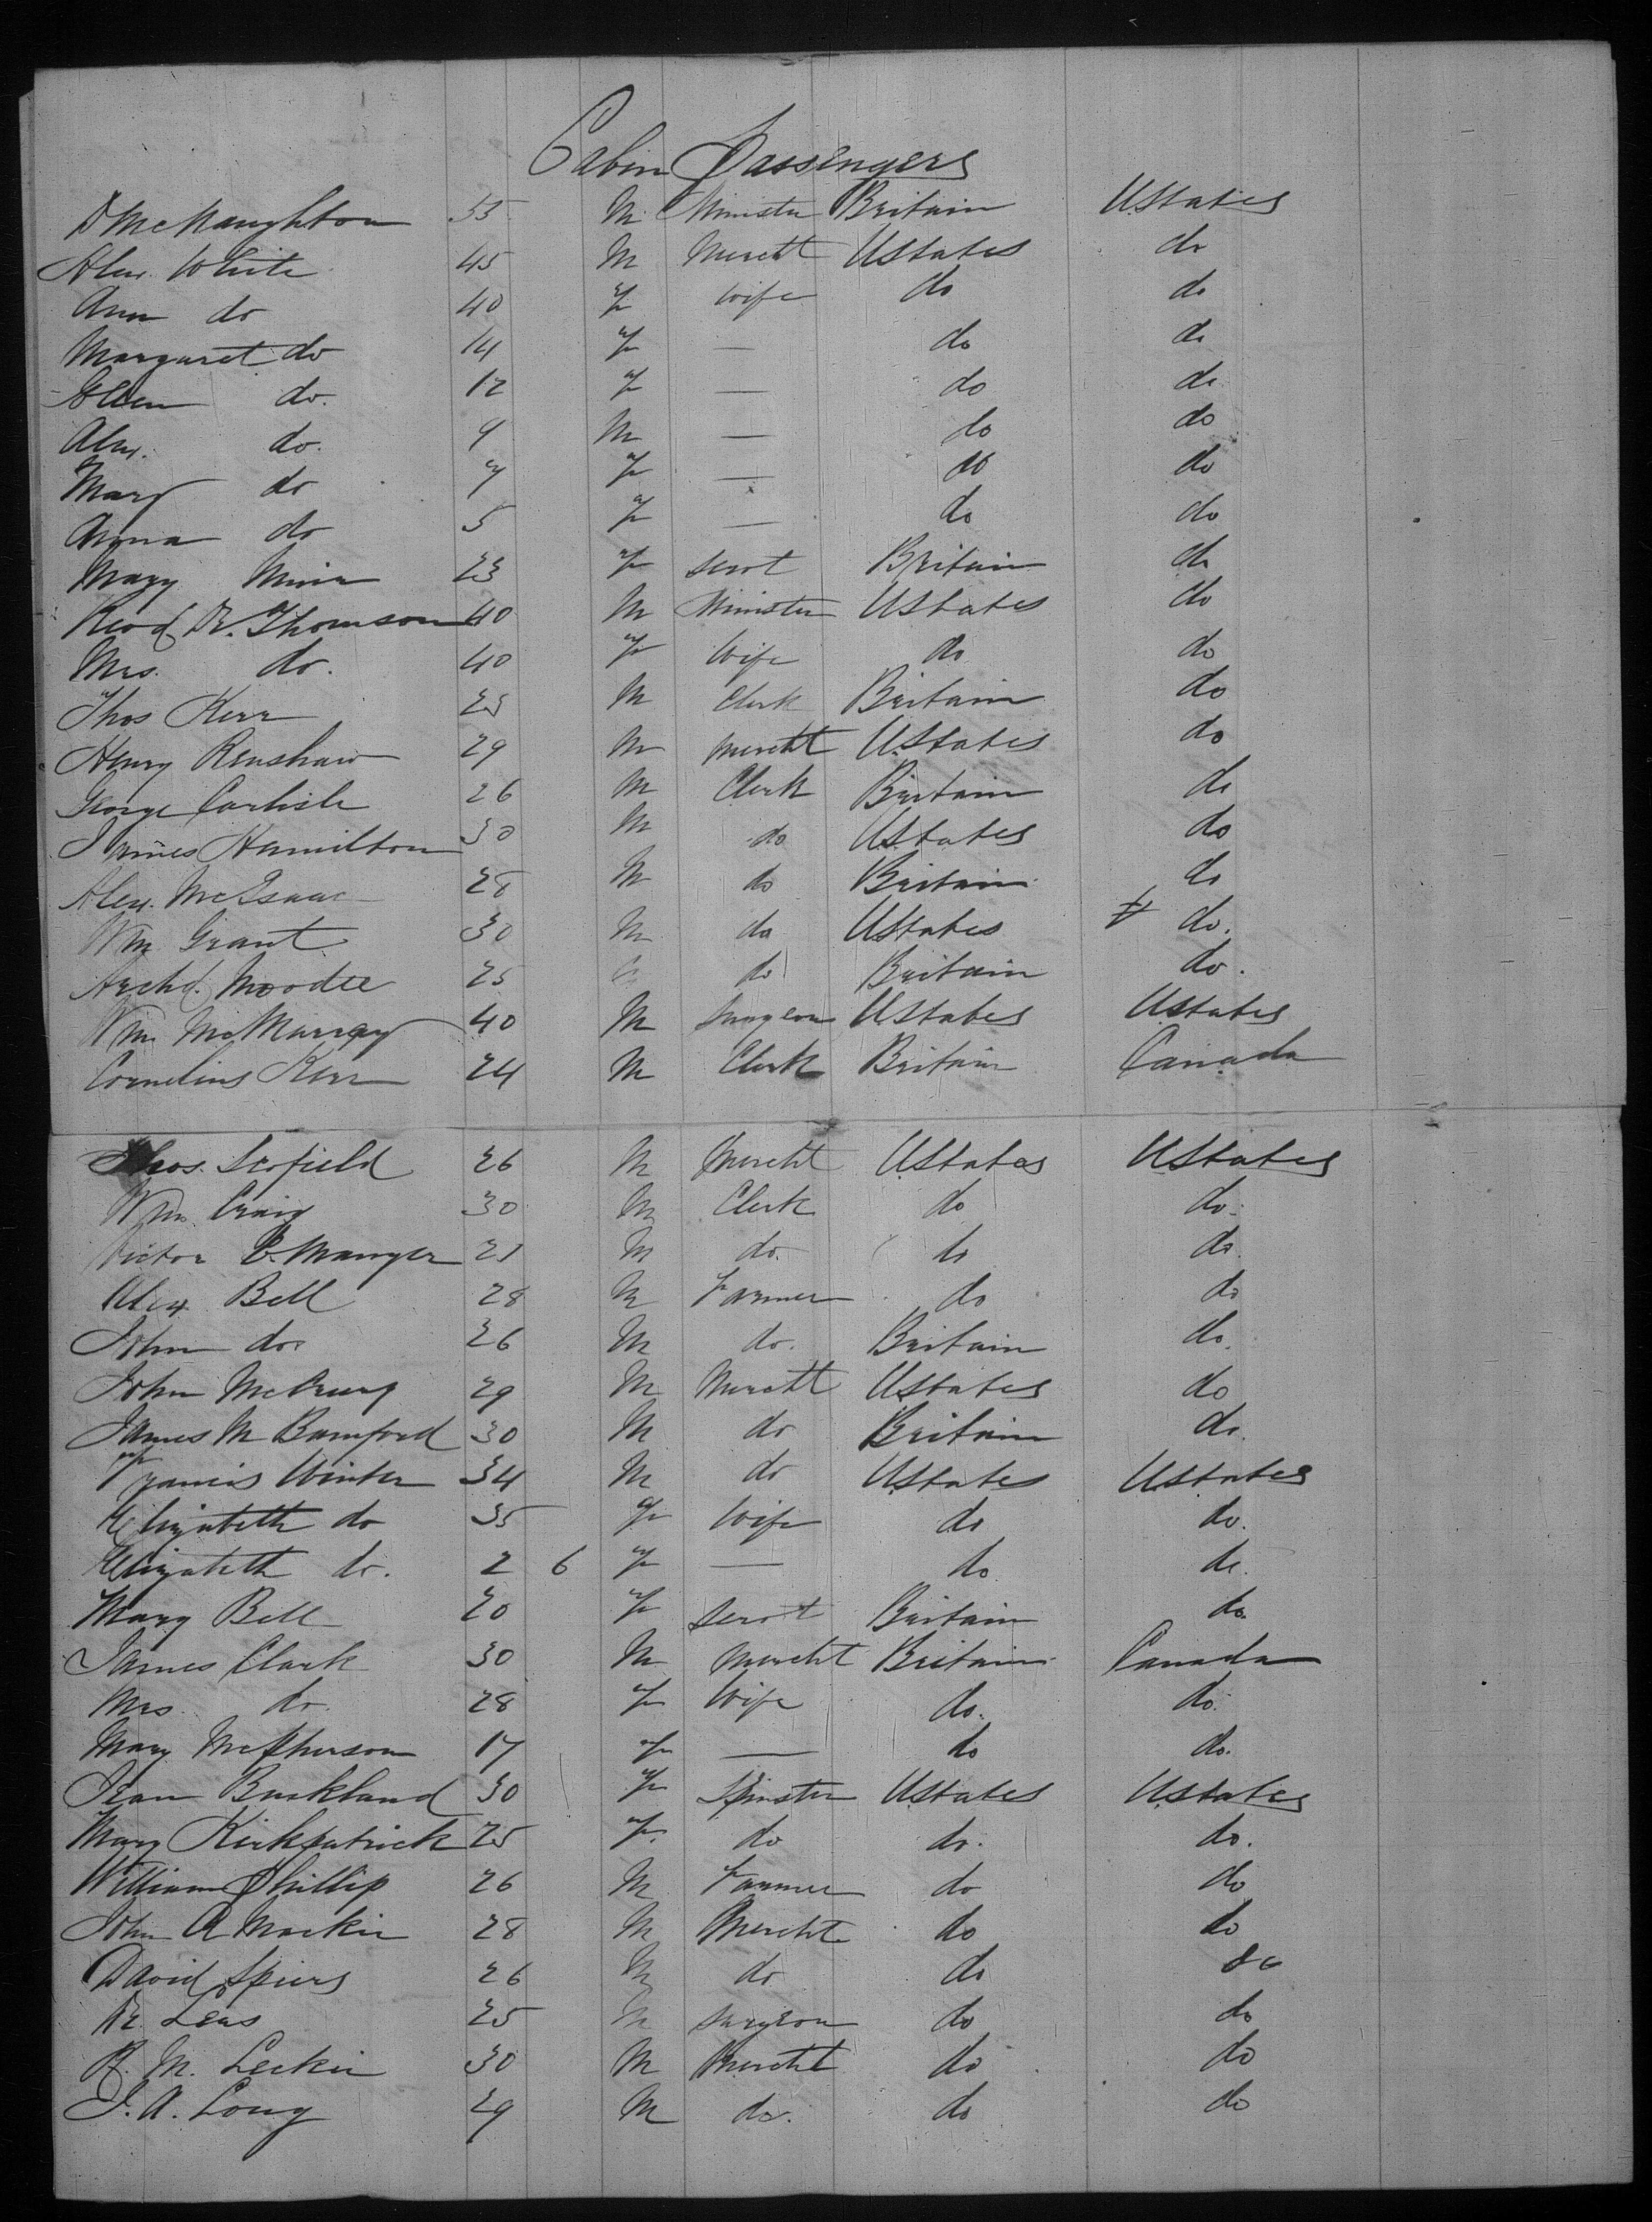 Cabin Passengers
D McNaughton 55 M Minister Britain UStates
Alex. White 45 M Mercht UStates do
Ann do 40 F Wife do do
Margaret do 14 F — do do
Ellen do. 12 F — do do
Alex. do. 9 M — do do
Mary do 7 F — do do
Anna do 5 F — do do
Mary 23 F Servt Britain do
Revd Dr. Thomson 40 M Minister UStates do
Mrs. do. 40 F Wife do do
Thos Kerr 25 M Clerk Britain do
Henry Renshaw 29 M Mercht UStates do
George Carlisle 26 M Clerk Britain do
James Hamilton 30 M do UStates do
Alex. McIsaac 28 M do Britain do
Wm Grant 30 M do UStates do.
Archd. Moodie 25 do Britain do.
Wm McMurray 40 M Surgeon UStates UStates
Cornelius Kerr 24 M Clerk Britain Canada
Thos. Scofield 26 M Mercht UStates UStates
Wm Craig 30 M Clerk do do.
Victor E. Mauger 21 M do. do do.
Alex Bell 28 M Farmer do do
John do 26 M do. Britain do.
John 29 M Mercht UStates do
James M Bamford 30 M do Britain do.
Francis Winter 34 M do UStates UStates
Elizabeth do 35 F Wife do do.
Elizabeth do. 2 6 F — do do.
Mary Bell 20 F Servt Britain do.
James Clark 30 M Mercht Britain Canada
Mrs do. 28 F Wife do. do.
Mary McPherson 17 F — do do.
Jean Buckland 30 F Spinster UStates UStates
Mary Kirkpatrick 25 F. do do. do.
William Phillip 26 M Farmer do do
John A Mackie 28 M Mercht do do
David Spiers 26 M do do do
Dr. Lees 25 M Surgeon do do
R. M. Leckie 30 M Mercht do do
J. A. Long 29 M do. do do